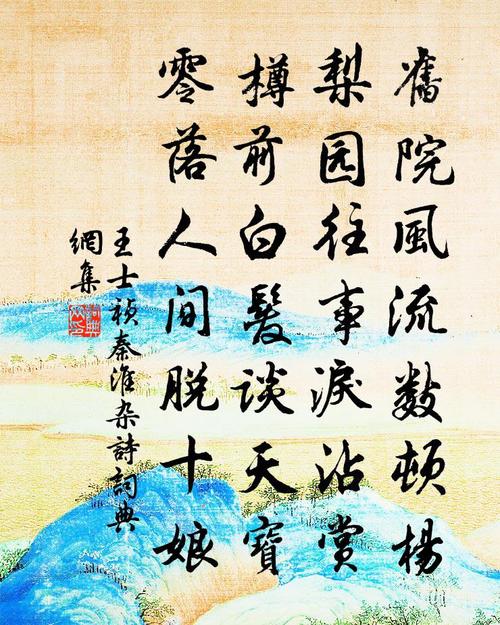 舊院風流數頓楊
梨园往事淚沾賞
樽前白髮談天寶
零落人间脫十娘
王士祯秦淮杂詩詞典
網集